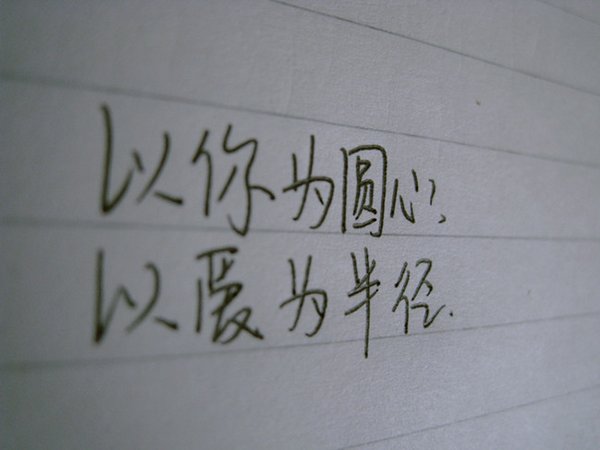 以你为圆心,
以爱为半径.